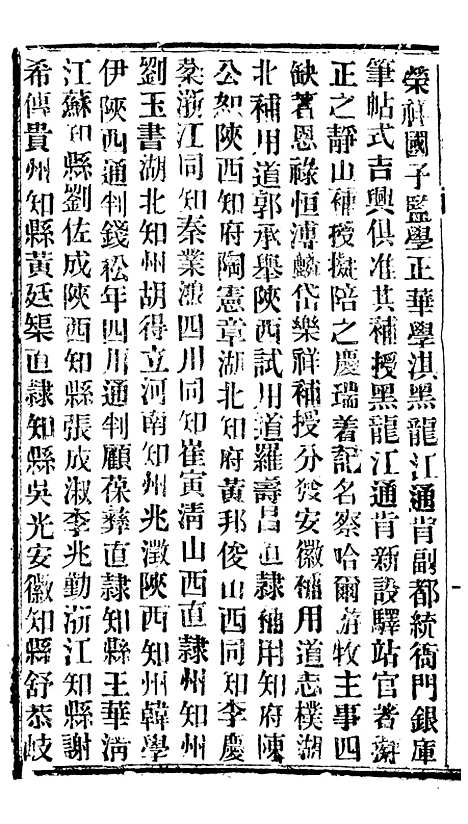 榮祥國子監學正華學淇黑龍江通肯副都統衙門銀庫
筆帖式吉興俱准其補授黑龍江通肯新設驛站官著
正之靜山補授擬陪之慶瑞着記名察哈爾游牧主事四
缺著恩祿恒溥麟岱樂祥補授分發安徽補用道志樸湖
北補用道郭承舉陝西試用道羅壽昌直隸補用知府陳
公恕陝西知府陶憲章湖北知府黃邦俊山西同知李慶
棻浙江同知秦業濃四川同知崔寅淸山西直隸州知州
劉玉書湖北知州胡得立河南知州兆瀓陝西知州韓學
伊陝西通判錢松年四川通判顧葆彝直隸知縣王華淸
江蘇知縣劉佐成陝西知縣張成淑李兆勤浙江知縣謝
希傳貴州知縣黃廷榘直隸知縣吳光安徽知縣舒恭岐